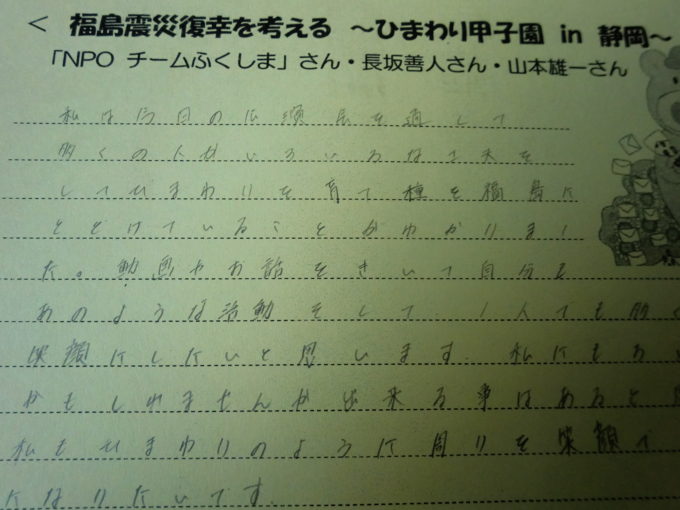 < 福島震災復幸を考える ～ひまわり甲子園 in 静岡～
「NPO チームふくしま」さん・長坂善人さん・山本雄一さん
私は今日の を通して
多くの人がいろいろな工夫を
してひまわりを育て種を福島に
とどけていることがわかりまし
た。動画やお話をきいて自分も
あのような活動をして、1人でも多く
笑顔にしたいと思います。私にも
かもしれませんが出来る事はあると
私もひまわりのように周りを笑顔で
になりたいです。